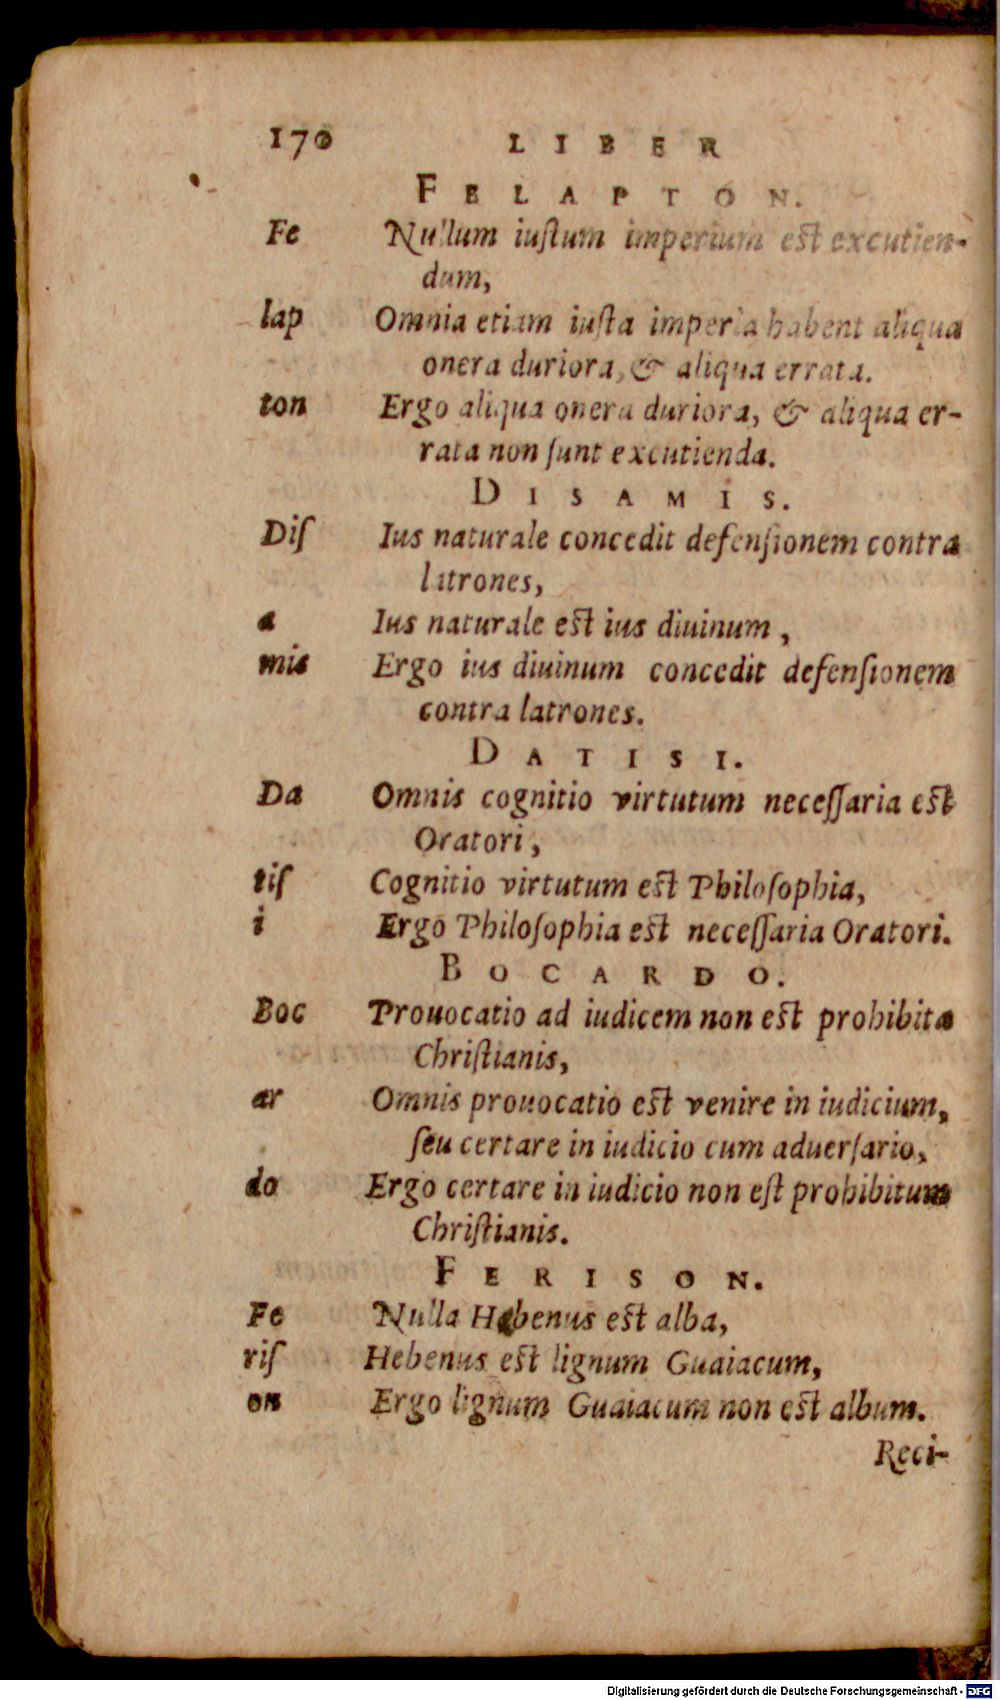 170 LIBER
FELAPTON.
Fe Nullum iuſtum imperium est excutien-
dum,
lap Omnia etiam iuſta imperia habent aliqua
onera duriora, & aliqua errata.
ton Ergo aliqua onera duriora, & aliqua er-
rata non ſunt excutienda.
DISAMIS.
Diſ Ius naturale concedit defenſionem contra
latrones,
a Ius naturale est ius diuinum,
mis Ergo ius diuinum concedit defenſionem
contra latrones.
DATISI.
Da Omnis cognitio virtutum neceſſaria est
Oratori,
tiſ Cognitio virtutum est Philoſophia,
i Ergo Philoſophia est neceſſaria Oratori.
BOCARDO.
Boc Prouocatio ad iudicem non est prohibita
Chriſtianis,
ar Omnis prouocatio est venire in iudicium,
ſeu certare in iudicio cum aduerſario,
do Ergo certare in iudicio non eſt prohibitum
Chriſtianis.
FERISON.
Fe Nulla Hebenus est alba,
riſ Hebenus est lignum Guaiacum,
on Ergo lignum Guaiacum non est album.
Reci-
Digitalisierung gefördert durch die Deutsche Forschungsgemeinschaft - DFG